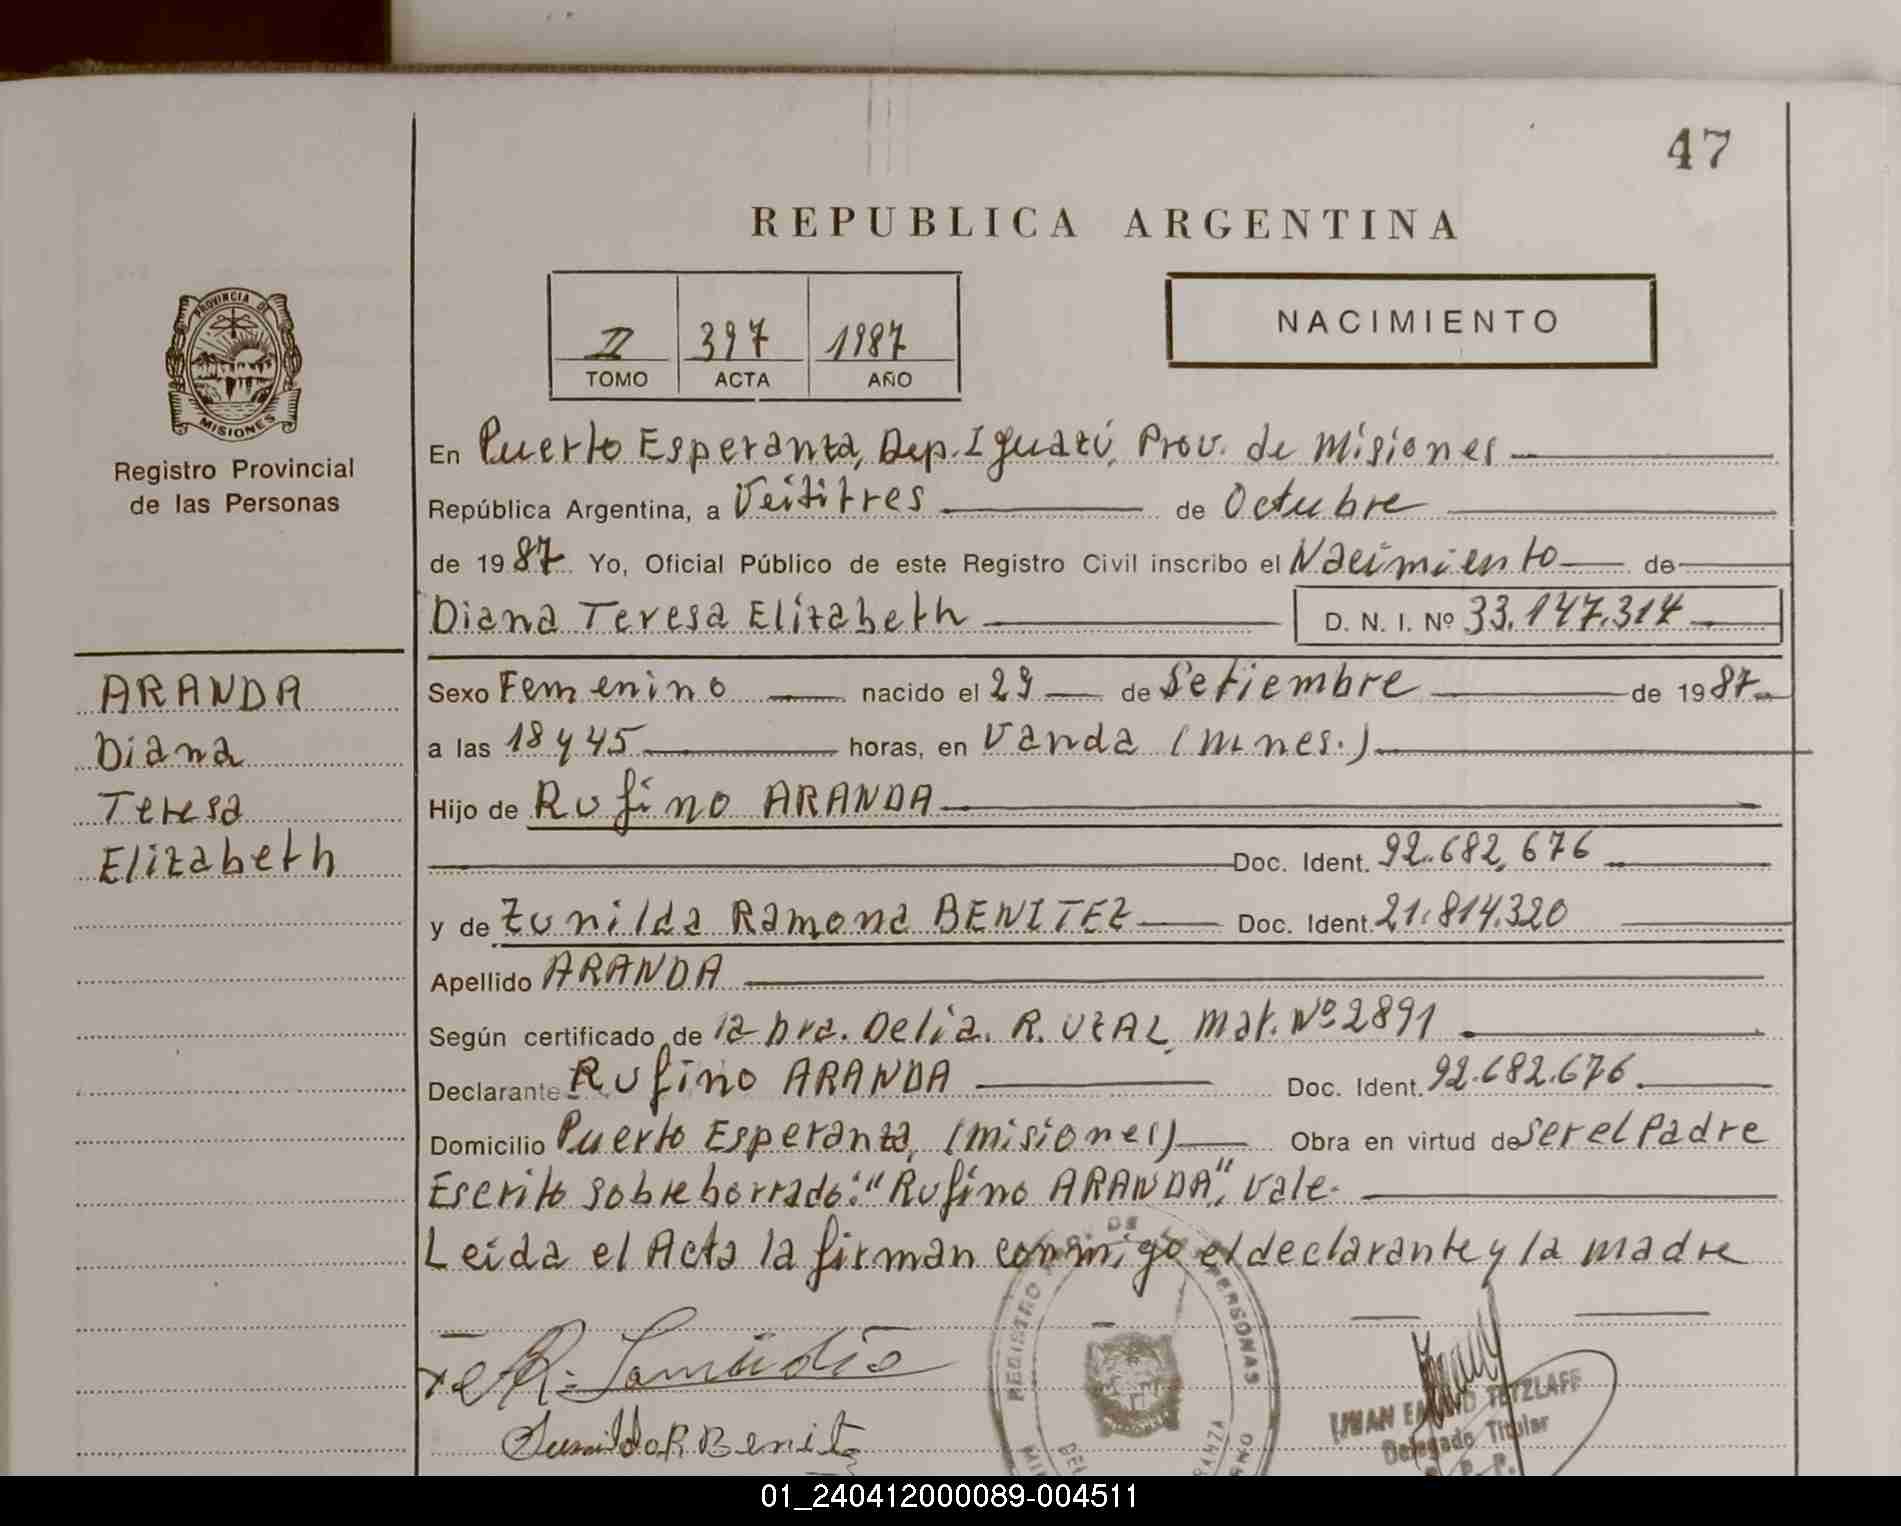 47
REPUBLICA ARGENTINA
II 397 1987
TOMO ACTA AÑO
NACIMIENTO
PROVINCIA DE
MISIONES
Registro Provincial
de las Personas
ARANDA
Diana
Teresa
Elizabeth
En Puerto Esperanza, Dep. Iguazú, Prov. de Misiones
República Argentina, a Veititres de Octubre
de 1987 Yo, Oficial Público de este Registro Civil inscribo el Nacimiento de
Diana Teresa Elizabeth D. N. I. Nº 33.147.314
Sexo Femenino nacido el 29 de Setiembre de 1987
a las 18 y 45 horas, en Vanda (Mnes.)
Hijo de Rufino ARANDA
Doc. Ident. 92.682.676
y de Zunilda Ramona BENITEZ Doc. Ident. 21.814.320
Apellido ARANDA
Según certificado de la Dra. Delia. R. UZAL, Mat. Nº 2891
Declarante Rufino ARANDA Doc. Ident. 92.682.676
Domicilio Puerto Esperanza, (Misiones) Obra en virtud de ser el Padre
Escrito sobre borrado: "Rufino ARANDA", Vale.
Leída el Acta la firman conmigo el declarante y la madre
REGISTRO DE PERSONAS
R. Benit
TETZLAFF
Delegado Titular
01_240412000089-004511